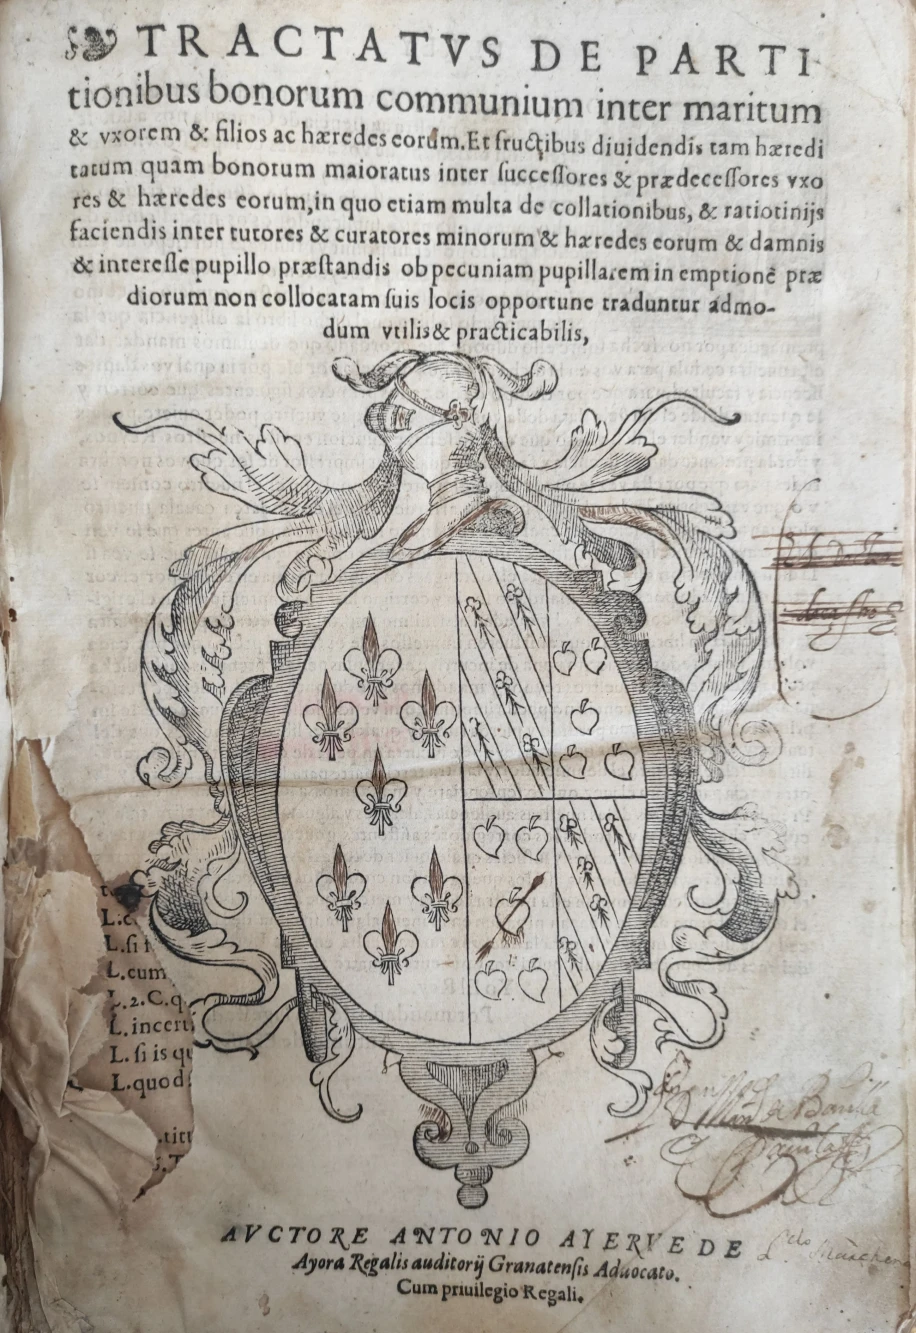 TRACTATVS DE PARTI
tionibus bonorum communium inter maritum
& vxorem & filios ac hæredes eorum. Et fructibus diuidendis tam hæredi
tatum quam bonorum maioratus inter ſucceſſores & prædeceſſores vxo
res & hæredes eorum, in quo etiam multa de collationibus, & ratiotinijs
faciendis inter tutores & curatores minorum & hæredes eorum & damnis
& intereſſe pupillo præſtandis ob pecuniam pupillarem in emptionē præ
diorum non collocatam ſuis locis opportune traduntur admo-
dum vtilis & practicabilis,
L.ſi
L.cum
L.2.C.q
L.incert
L.ſi is qu
L.quod
AVCTORE ANTONIO AYERVE DE
Ayora Regalis auditorij Granatenſis Aduocato.
Cum priuilegio Regali.